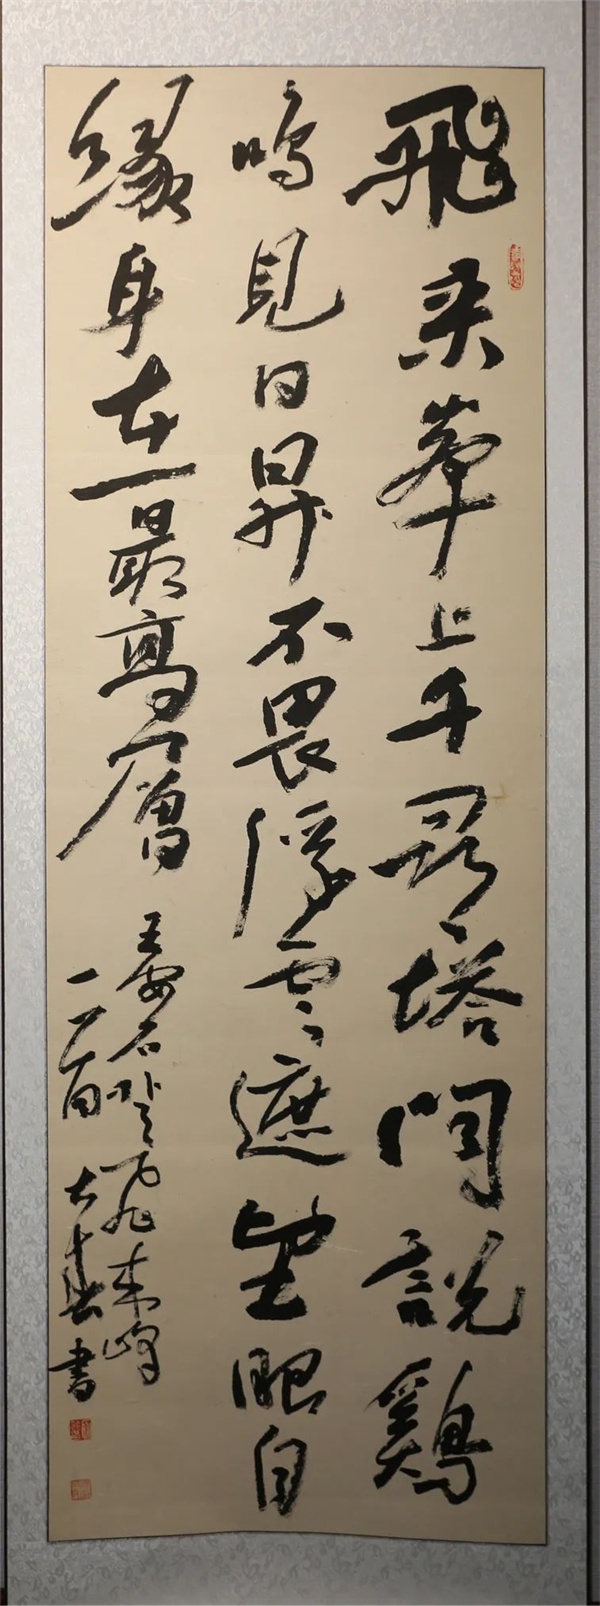 飛來峯上千尋塔聞說鷄
鳴見日昇不畏浮雲遮望眼自
緣身在一最高層
王安石登飛來峰
一首 大
書